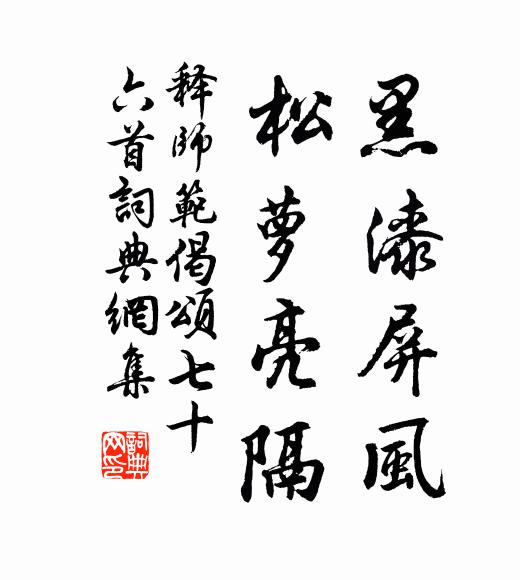 黑漆屏風
松夢亮隔
释師範偈頌七十
六首詞典網集
詞典網印